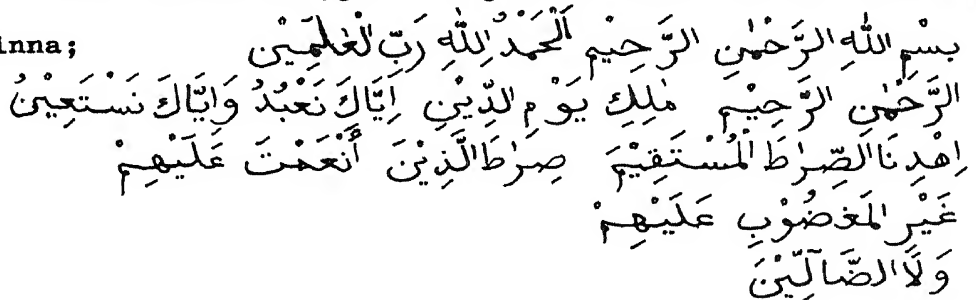 inna; بِسْمِ اللّٰهِ الرَّحْمٰنِ الرَّحِيْمِ اَلْحَمْدُ لِلّٰهِ رَبِّ الْعٰلَمِيْن
الرَّحْمٰنِ الرَّحِيْمِ مٰلِكِ يَوْمِ الدِّيْنِ اِيَّاكَ نَعْبُدُ وَاِيَّاكَ نَسْتَعِيْنُ
اِهْدِنَا الصِّرَاطَ الْمُسْتَقِيْمَ صِرَاطَ الَّذِيْنَ أَنْعَمْتَ عَلَيْهِمْ
غَيْرِ الْمَغْضُوْبِ عَلَيْهِمْ
وَلَا الضَّآلِّيْنَ